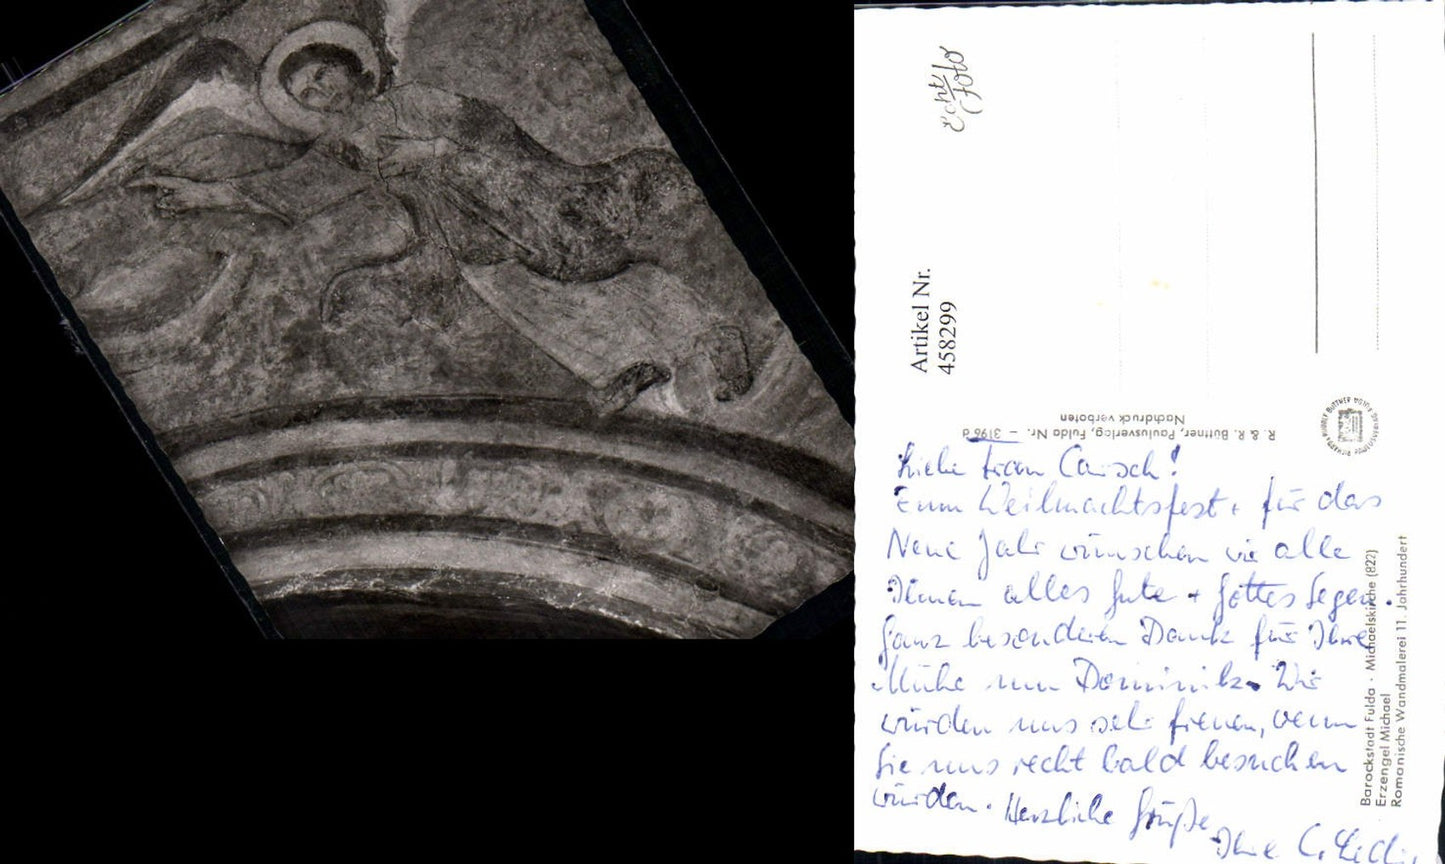 echt
Foto
Artikel Nr.
458299
R. & R. Büttner, Paulusverlag, Fulda Nr. – 3196 d
Nachdruck verboten
Liebe Frau
Zum Weihnachtsfest + für das
Neue Jahr wünschen wir alle
Ihnen alles Gute + Gottes Segen.
Ganz besonderen Dank für Ihre
Mühe um Dominik. Wir
würden uns sehr freuen, wenn
Sie uns recht bald besuchen
würden. Herzliche Grüße
Ihre
Barockstadt Fulda · Michaelskirche (822)
Erzengel Michael
Romanische Wandmalerei 11. Jahrhundert